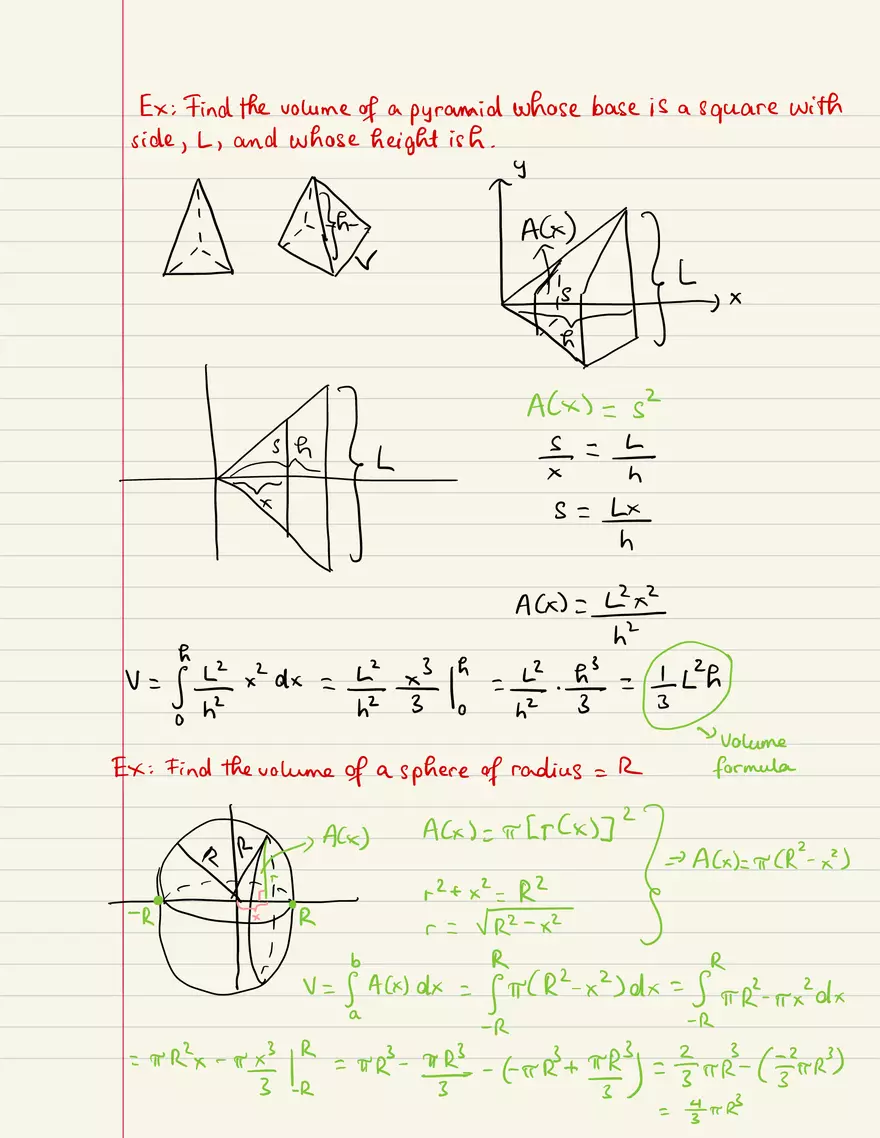 Ex: Find the volume of a pyramid whose base is a square with
side, L, and whose height is h.
h
y
A(x)
s
h
L
x
s h
x
L
A(x) = s²
s/x = L/h
s = Lx/h
A(x) = L²x²/h²
V = ∫₀ʰ L²/h² x² dx = L²/h² x³/3 |₀ʰ = L²/h² · h³/3 = 1/3 L²h
Volume
formula
Ex: Find the volume of a sphere of radius = R
R R
A(x)
r
x
-R
R
A(x) = π[r(x)]²
r² + x² = R²
r = √(R² - x²)
⇒ A(x) = π(R² - x²)
V = ∫ₐᵇ A(x) dx = ∫₋ᴿᴿ π(R² - x²) dx = ∫₋ᴿᴿ πR² - πx² dx
= πR²x - πx³/3 |₋ᴿᴿ = πR³ - πR³/3 - (-πR³ + πR³/3) = 2/3 πR³ - (-2/3 πR³)
= 4/3 πR³